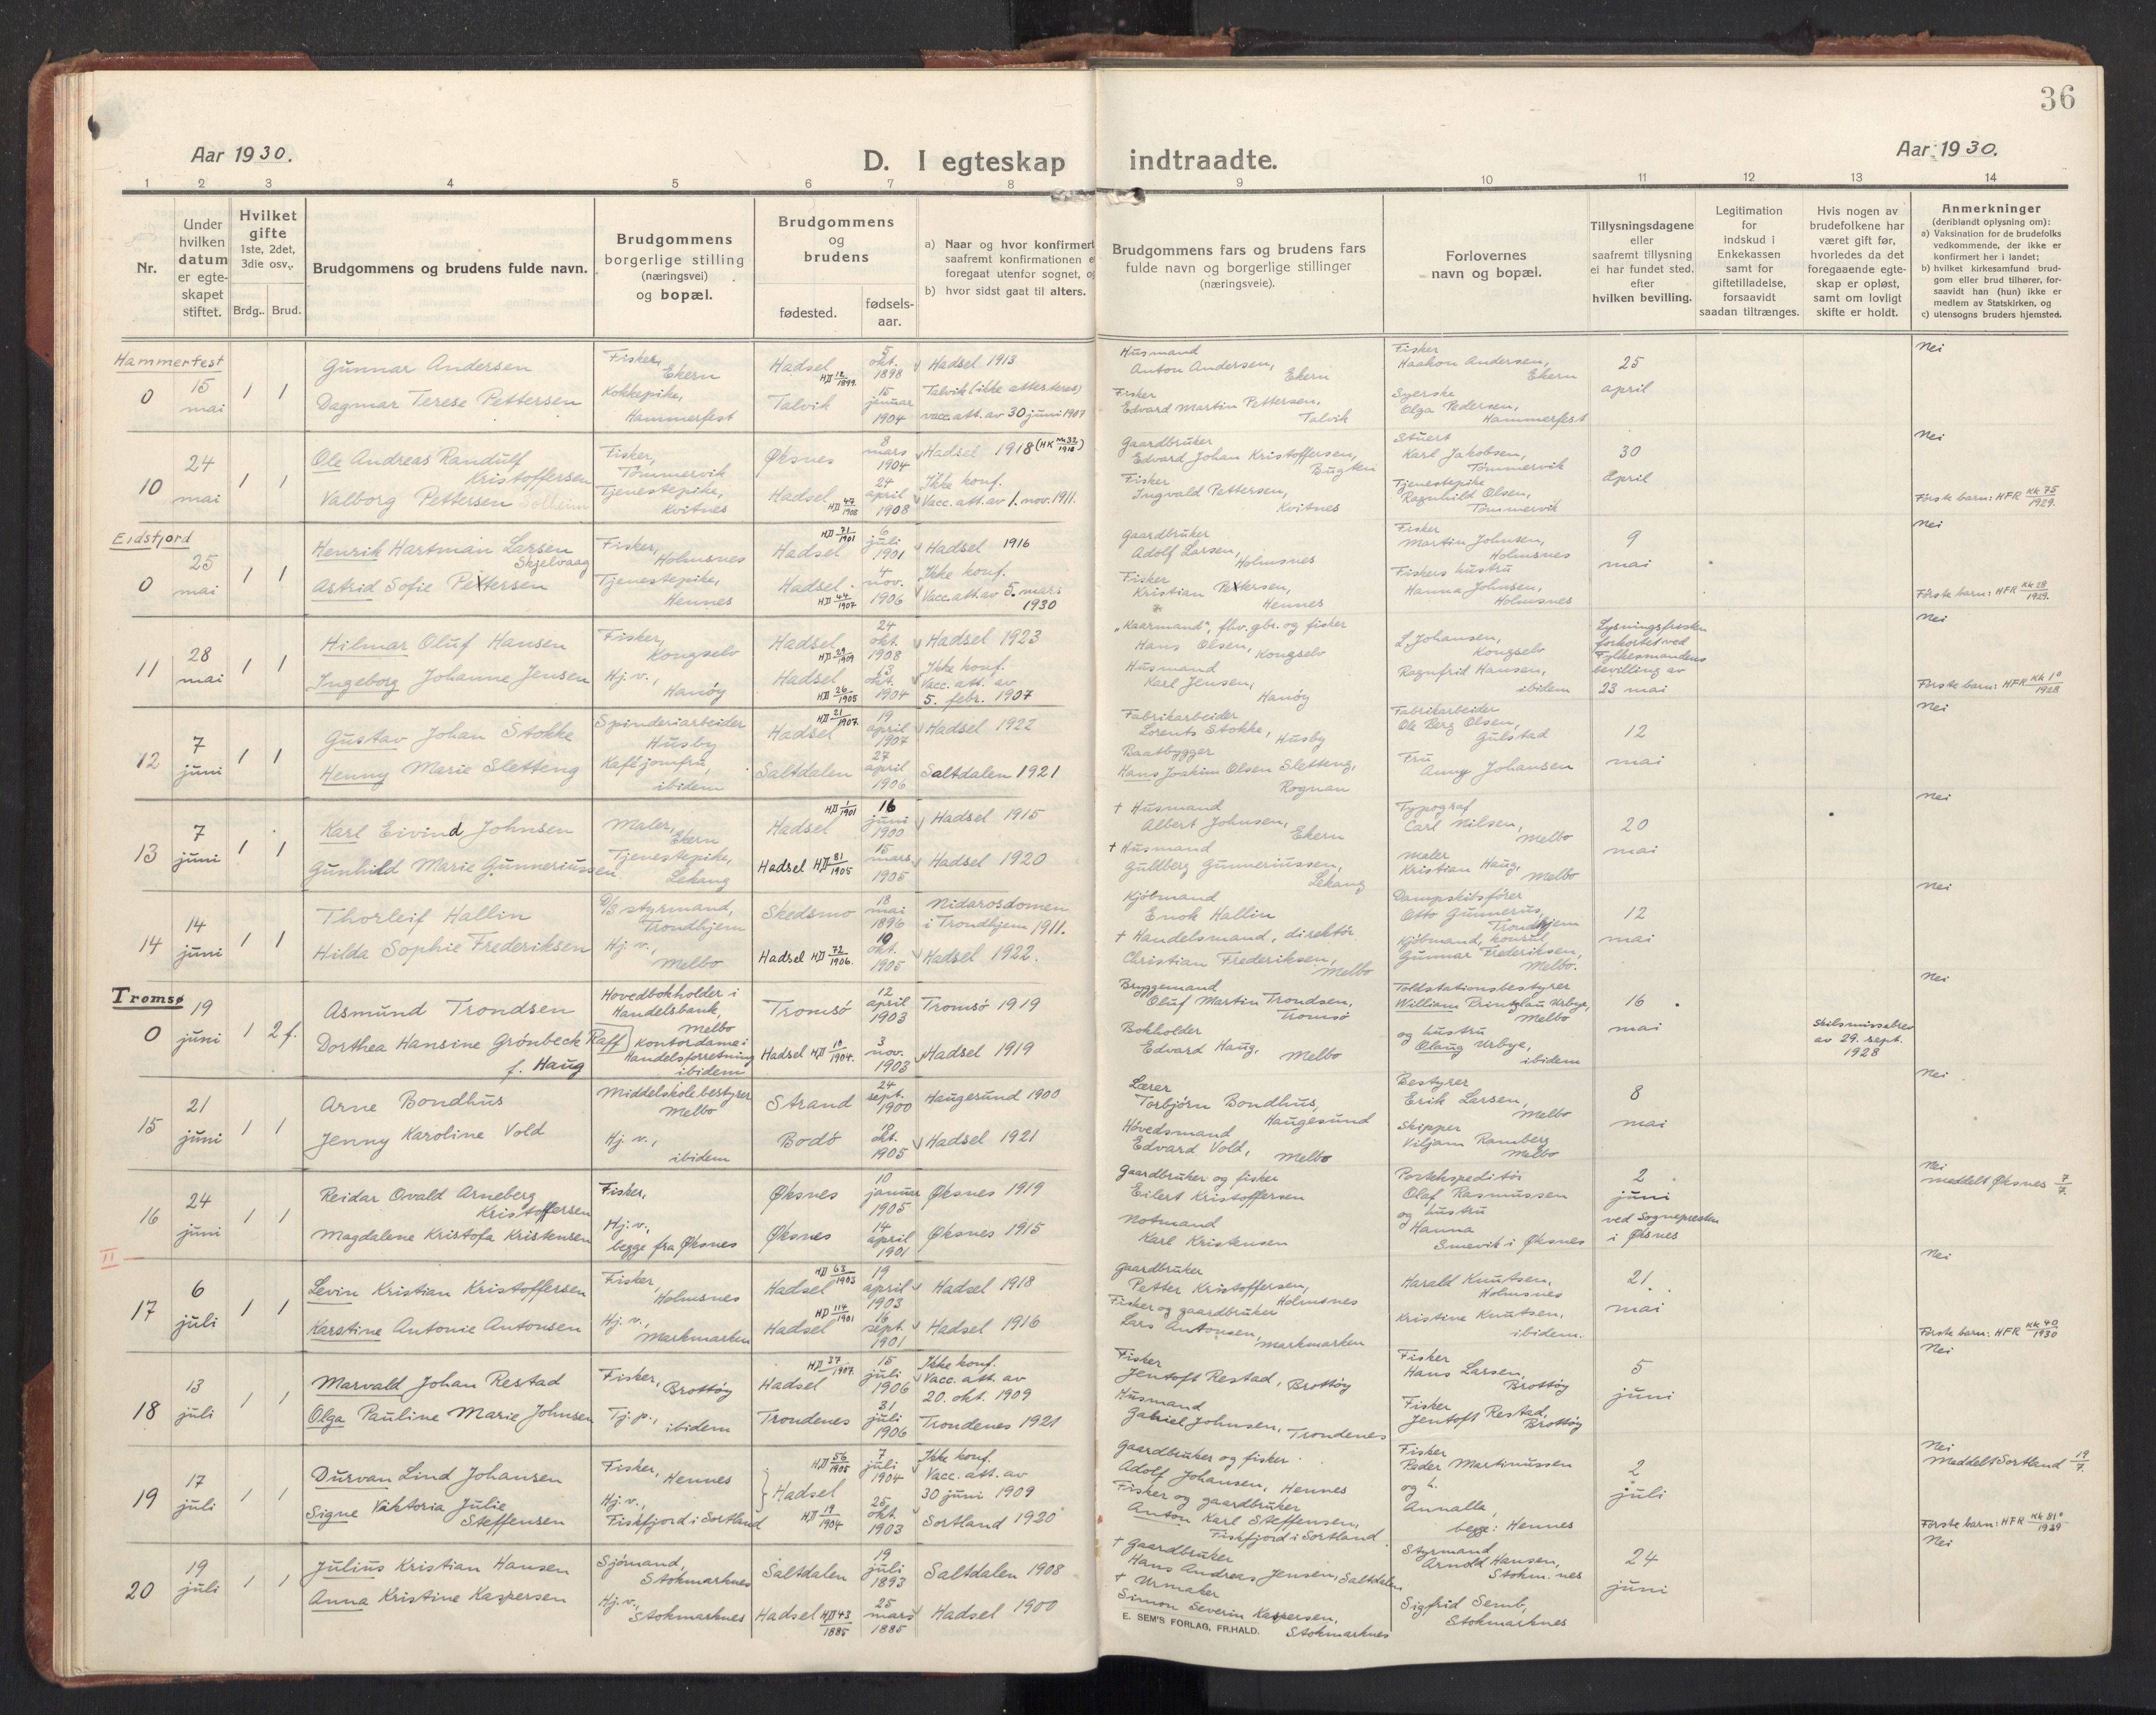 36
Aar 1930.
D. I egteskap indtraadte.
Aar 1930.
1 2 3 4 5 6 7 8 9 10 11 12 13 14
Nr.
Under
hvilken
datum
er egte-
skapet
stiftet.
Hvilket
gifte
1ste, 2det,
3die osv..
Brdg.. Brud.
Brudgommens og brudens fulde navn.
Brudgommens
borgerlige stilling
(næringsvei)
og bopæl.
Brudgommens
og
brudens
fødested.
fødsels-
aar.
a) Naar og hvor konfirmert
saafremt konfirmationen e
foregaat utenfor sognet, o
b) hvor sidst gaat til alters.
Brudgommens fars og brudens fars
fulde navn og borgerlige stillinger
(næringsveie).
Forlovernes
navn og bopæl.
Tillysningsdagene
eller
saafremt tillysning
ei har fundet sted.
efter
hvilken bevilling.
Legitimation
for
indskud i
Enkekassen
samt for
giftetilladelse,
forsaavidt
saadan tiltrænges.
Hvis nogen av
brudefolkene har
været gift før,
hvorledes da det
foregaaende egte-
skap er opløst,
samt om lovligt
skifte er holdt.
Anmerkninger
(deriblandt oplysning om):
a) Vaksination for de brudefolks
vedkommende, der ikke er
konfirmert her i landet;
b) hvilket kirkesamfund brud-
gom eller brud tilhører, for-
saavidt han (hun) ikke er
medlem av Statskirken, og
c) utensogns bruders hjemsted.
Hammerfest
0
15
mai
1 1
Gunnar Andersen
Dagmar Terese Pettersen
Fisker,
Ekern
Kokkepike,
Hammerfest
Hadsel
HD 12/1899.
Talvik
5
okt.
1898
15
januar
1904
Hadsel 1913
Talvik (ikke attesteres)
vacc. att. av 30 juni 1907
Husmand
Anton Andersen,
Ekern
Fisker
Edvard Martin Pettersen,
Talvik
Fisker
Haakon Andersen,
Ekern
Syerske
Olga Pedersen,
Hammerfest
25
april
Nei
10
24
mai
1 1
Ole Andreas Randulf
Kristoffersen
Valborg Pettersen Solheim
Fisker,
Tömmervik
Tjenestepike,
Kvitnes
Øksnes
Hadsel
HD 47/1908
8
mars
1904
24
april
1908
Hadsel 1918 (HK Nr. 32/1918)
Ikke konf.
Vacc. att. av 1. nov. 1911.
Gaardbruker
Edvard Johan Kristoffersen,
Bugten
Fisker
Ingvald Pettersen,
Kvitnes
Stuert
Karl Jakobsen,
Tömmervik
Tjenestepike
Ragnhild Olsen,
Tömmervik
30
april
Nei
Förste barn: HFR KK 75/1929.
Eidsfjord
0
25
mai
1 1
Henrik Hartman Larsen
Skjelvaag
Astrid Sofie Pettersen
Fisker,
Holmsnes
Tjenestepike,
Hennes
HD 71/1901
Hadsel
Hadsel
HD 44/1907
6
juli
1901
4
nov.
1906
Hadsel 1916
Ikke konf.
Vacc. att. av 5. mars
1930
Gaardbruker
Adolf Larsen,
Holmsnes
Fisker
Kristian Pettersen,
Hennes
Fisker
Martin Johnsen,
Holmsnes
Fiskers hustru
Hanna Johnsen,
Holmsnes
9
mai
Nei
Förste barn: HFR KK 28/1929.
11
28
mai
1 1
Hilmar Oluf Hansen
Ingeborg Johanne Jensen
Fisker,
Kongselv
Hj. v.,
Hanöy
Hadsel
HD 29/1909
Hadsel
HD 26/1905
24
okt.
1908
13
okt.
1904
Hadsel 1923
Ikke konf.
Vacc. att. av
5. febr. 1907
„Kaarmand", fhv. gbr. og fisker
Hans Olsen,
Kongselv
Husmand
Karl Jensen,
Hanöy
L. Johansen,
Kongselv
Ragnfrid Hansen,
ibidem
Lysningsfristen
forkortet ved
Fylkesmandens
bevilling av
23 mai
Nei
Förste barn: HFR KK 1°/1928
12
7
juni
1 1
Gustav Johan Stokke
Henny Marie Sletteng
Spinderiarbeider
Husby
Kaféjomfru,
ibidem
HD 21/1907.
Hadsel
Saltdalen
19
april
1907
27
april
1906
Hadsel 1922
Saltdalen 1921
Fabrikarbeider
Lorents Stokke,
Husby
Baatbygger
Hans Joakim Olsen Sletteng,
Rognan
Fabrikarbeider
Ole Berg Olsen,
Gulstad
Fru
Anny Johansen
12
mai
Nei
13
7
juni
1 1
Karl Eivind Johnsen
Gunhild Marie Gunneriussen
Maler,
Ekern
Tjenestepike,
Lekang
HD 1/1901
Hadsel
Hadsel HD 81/1905
16
juni
1900
15
mars
1905
Hadsel 1915
Hadsel 1920
+ Husmand
Albert Johnsen,
Ekern
+ Husmand
Guldberg Gunneriussen,
Lekang
Typograf
Carl Nilsen,
Melbo
Maler
Kristian Haug,
Melbo
20
mai
Nei
14
14
juni
1 1
Thorleif Hallin
Hilda Sophie Frederiksen
D/S styrmand,
Trondhjem
Hj. v.,
Melbo
Skedsmo
Hadsel HD 72/1906.
18
mai
1896
19
okt.
1905
Nidarosdomen
i Trondhjem 1911.
Hadsel 1922.
Kjöbmand
Enok Hallin
+ Handelsmand, direktör
Christian Frederiksen,
Melbo
Dampskibsförer
Otto Gunnerus,
Trondhjem
Kjöbmand, konsul,
Gunnar Frederiksen,
Melbo.
12
mai
Nei
Tromsø
0
19
juni
1 2 f.
Asmund Trondsen
Dorthea Hansine Grönbeck Raff
f. Haug
Hovedbokholder i
Handelsbank,
Melbo
Kontordame i
Handelsforretning
ibidem
Tromsö
Hadsel HD 10/1904.
12
april
1903
3
nov.
1903
Tromsö 1919
Hadsel 1919
Bryggemand
Oluf Martin Trondsen,
Tromsö
Bokholder
Edvard Haug,
Melbo
Toldstationsbestyrer
William Printzlau Urbye,
Melbo
og hustru
Olaug Urbye,
ibidem
16
mai
Skilsmissebrev
av 29. sept.
1928
Nei
15
21
juni
1 1
Arne Bondhus
Jenny Karoline Vold
Middelskolebestyrer
Melbo
Hj. v.,
ibidem
Strand
Bodö
24
sept.
1900
okt.
1905
Haugesund 1900
Hadsel 1921
Lærer
Torbjörn Bondhus,
Haugesund
Hövedsmand
Edvard Vold,
Melbo
Bestyrer
Erik Larsen,
Melbo
Skipper
Viljam Ramberg
Melbo
8
mai
Nei
16
24
juni
1 1
Reidar Ovald Arneberg
Kristoffersen
Magdalene Kristofa Kristensen
Fisker,
Hj. v.,
begge fra Øksnes
Øksnes
Øksnes
10
januar
1905
14
april
1901
Øksnes 1919
Øksnes 1915
Gaardbruker og fisker
Eilert Kristoffersen
Notmand
Karl Kristensen
Postekspeditör
Olaf Rasmussen
og hustru
Hanna
Smevik i Øksnes
2
juni
ved Sognepresten
i Øksnes
Nei
Meddelt Øksnes 7/7.
II
17
6
juli
1 1
Levin Kristian Kristoffersen
Karstine Antonie Antonsen
Fisker,
Holmsnes
Hj. v.,
Markmarken
HD 63/1903
Hadsel
HD 114/1901
Hadsel
19
april
1903
16
sept.
1901
Hadsel 1918
Hadsel 1916
Gaardbruker
Petter Kristoffersen,
Holmsnes
Fisker og gaardbruker
Lars Antonsen,
Markmarken
Harald Knutsen,
Holmsnes
Kristine Knutsen,
ibidem.
21
mai
Nei
Förste barn: HFR KK 40/1930
18
13
juli
1 1
Marvald Johan Restad
Olga Pauline Marie Johnsen
Fisker,
Brottöy
Tj. p.,
ibidem
HD 37/1907.
Hadsel
Trondenes
15
juli
1906
31
juli
1906
Ikke konf.
Vacc. att. av
20. okt. 1909
Trondenes 1921
Fisker
Jentoft Restad, Brottöy
Husmand
Gabriel Johnsen,
Trondenes
Fisker
Hans Larsen,
Brottöy
Fisker
Jentoft Restad,
Brottöy
5
juni
Nei
19
17
juli
1 1
Durvan Lind Johansen
Signe Viktoria Julie
Steffensen
Fisker, Hennes
Hj. v.,
Fiskfjord i Sortland
HD 56/1905
Hadsel
HD 19/1904
7
juli
1904
25
okt
1903
Ikke konf.
Vacc. att. av
30 juni 1909
Sortland 1920
Gaardbruker og fisker
Adolf Johansen, Hennes
Fisker og gaardbruker
Anton Karl Steffensen,
Fiskfjord i Sortland
Fisker
Peder Martinussen
og h.
Annalla,
begge: Hennes
2
juli
Nei
Meddelt Sortland 19/7.
Förste barn: HFR KK 81°/1929
20
19
juli
1 1
Julius Kristian Hansen
Anna Kristine Kaspersen
Sjömand,
Stokmarknes
Hj. v.,
Stokmarknes
Saltdalen
Hadsel HD 43/1885
19
juli
1893
25
mars
1885
Saltdalen 1908
Hadsel 1900
+ Gaardbruker
Hans Andreas Jensen, Saltdalen
+ Urmaker
Simon Severin Kaspersen,
Stokmarknes
Styrmand
Arnold Hansen,
Stokm.nes
Sigfrid Semb,
Stokmarknes
24
juni
Nei
E. SEM'S FORLAG, FR.HALD.